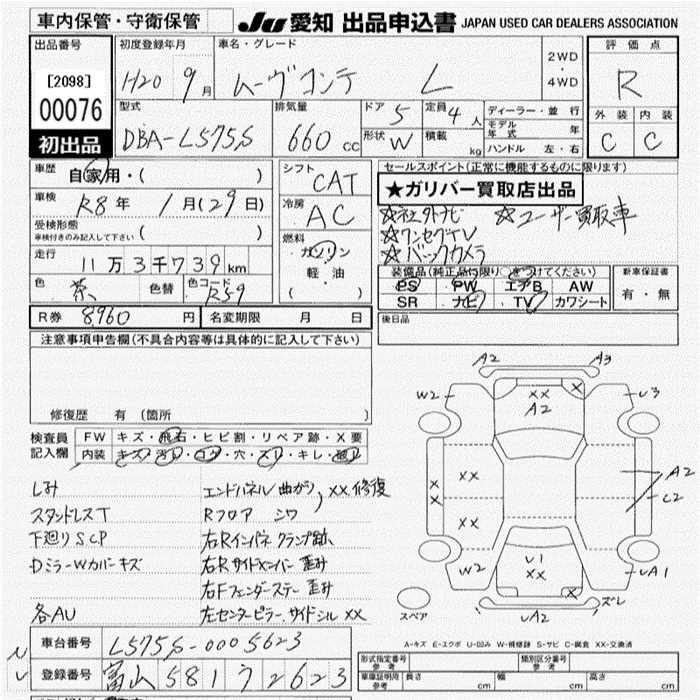 車内保管・守衛保管
JU 愛知 出品申込書 JAPAN USED CAR DEALERS ASSOCIATION
出品番号
[2098]
00076
初出品
初度登録年月
H20 9月
車名・グレード
ムーヴコンテ L
2WD
・
4WD
評価点
R
外装 内装
C C
型式
DBA-L575S
排気量
660 cc
ドア 5
定員 4人
形状 W
積載 kg
ディーラー・並行
モデル年式 年
ハンドル 左・右
車歴
自家用・( )
車検
R8年 1月(29日)
受検形態
車検付きのみ記入して下さい ( )
走行
11万3千739km
色 茶
色替
色コード R59
シフト
CAT
冷房
AC
燃料
ガソリン
軽油
( )
セールスポイント(正常に機能するものに限ります)
★ガリバー買取店出品
☆社外ナビ ☆ユーザー買取車
☆ワンセグTV
☆バックカメラ
装備品(純正品に限り)を○をつけてください
PS PW エアB AW
SR ナビ TV カワシート
新車保証書
有・無
R券 8960円
名変期限 月 日
後日品
注意事項申告欄(不具合内容等は具体的に記入して下さい)
修復歴 有 (箇所 )
検査員記入欄
FW キズ・飛石・ヒビ割・リペア跡・X要
内装 キズ・汚レ・コゲ・穴・スレ・キレ・破レ
しみ
スタンドレスT
下廻りSCP
DミラーWカバーキズ
各AU
エンドパネル曲がり,XX修復
Rフロア シワ
右Rインパネ クランプ跡
右Rサイドメンバー 歪み
右Fフェンダーステー 歪み
左センターピラー,サイドシルXX
A2 A3
W2 XX X U3
A2
XX
X
X
XX
A2
C2
W2 U1 UA1
XX
X
UA2 ズレ
スペア
A-キズ E-エクボ U-凹み W-補修跡 S-サビ C-腐食 XX-交換済
車台番号 L575S-0005623
登録番号 富山 581 う 2623
形式指定番号
参考
類別区分番号
参考
車庫証明用
参考
長さ cm
幅 cm
高さ cm